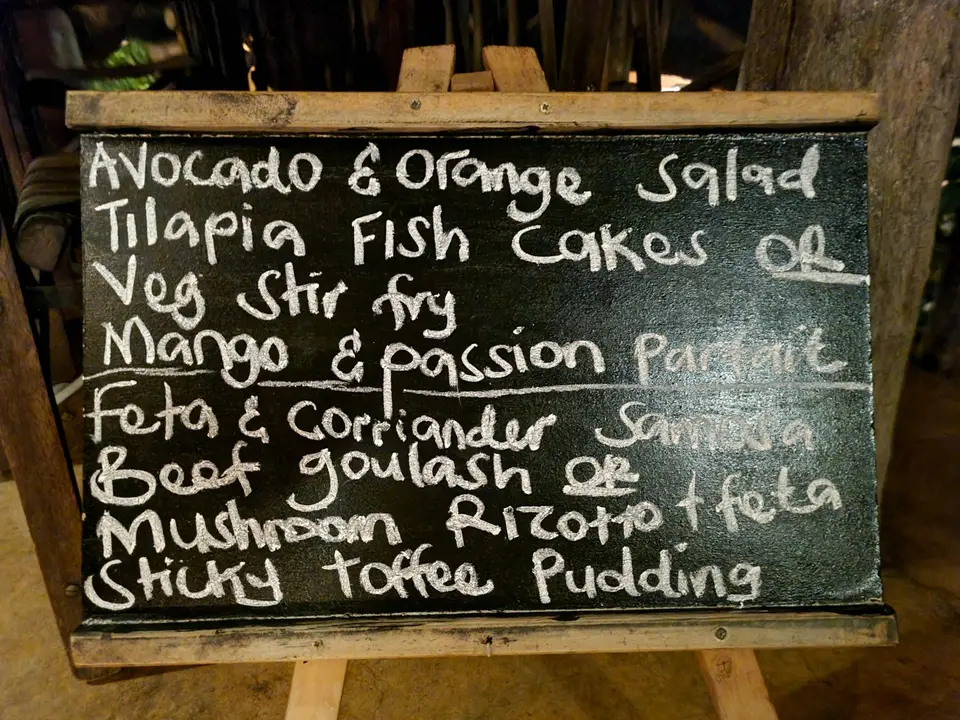 Avocado & Orange Salad
Tilapia Fish Cakes OR
Veg Stir fry
Mango & passion Parfait
Feta & Corriander Samosa
Beef goulash OR
Mushroom Rizotto + feta
Sticky Toffee Pudding